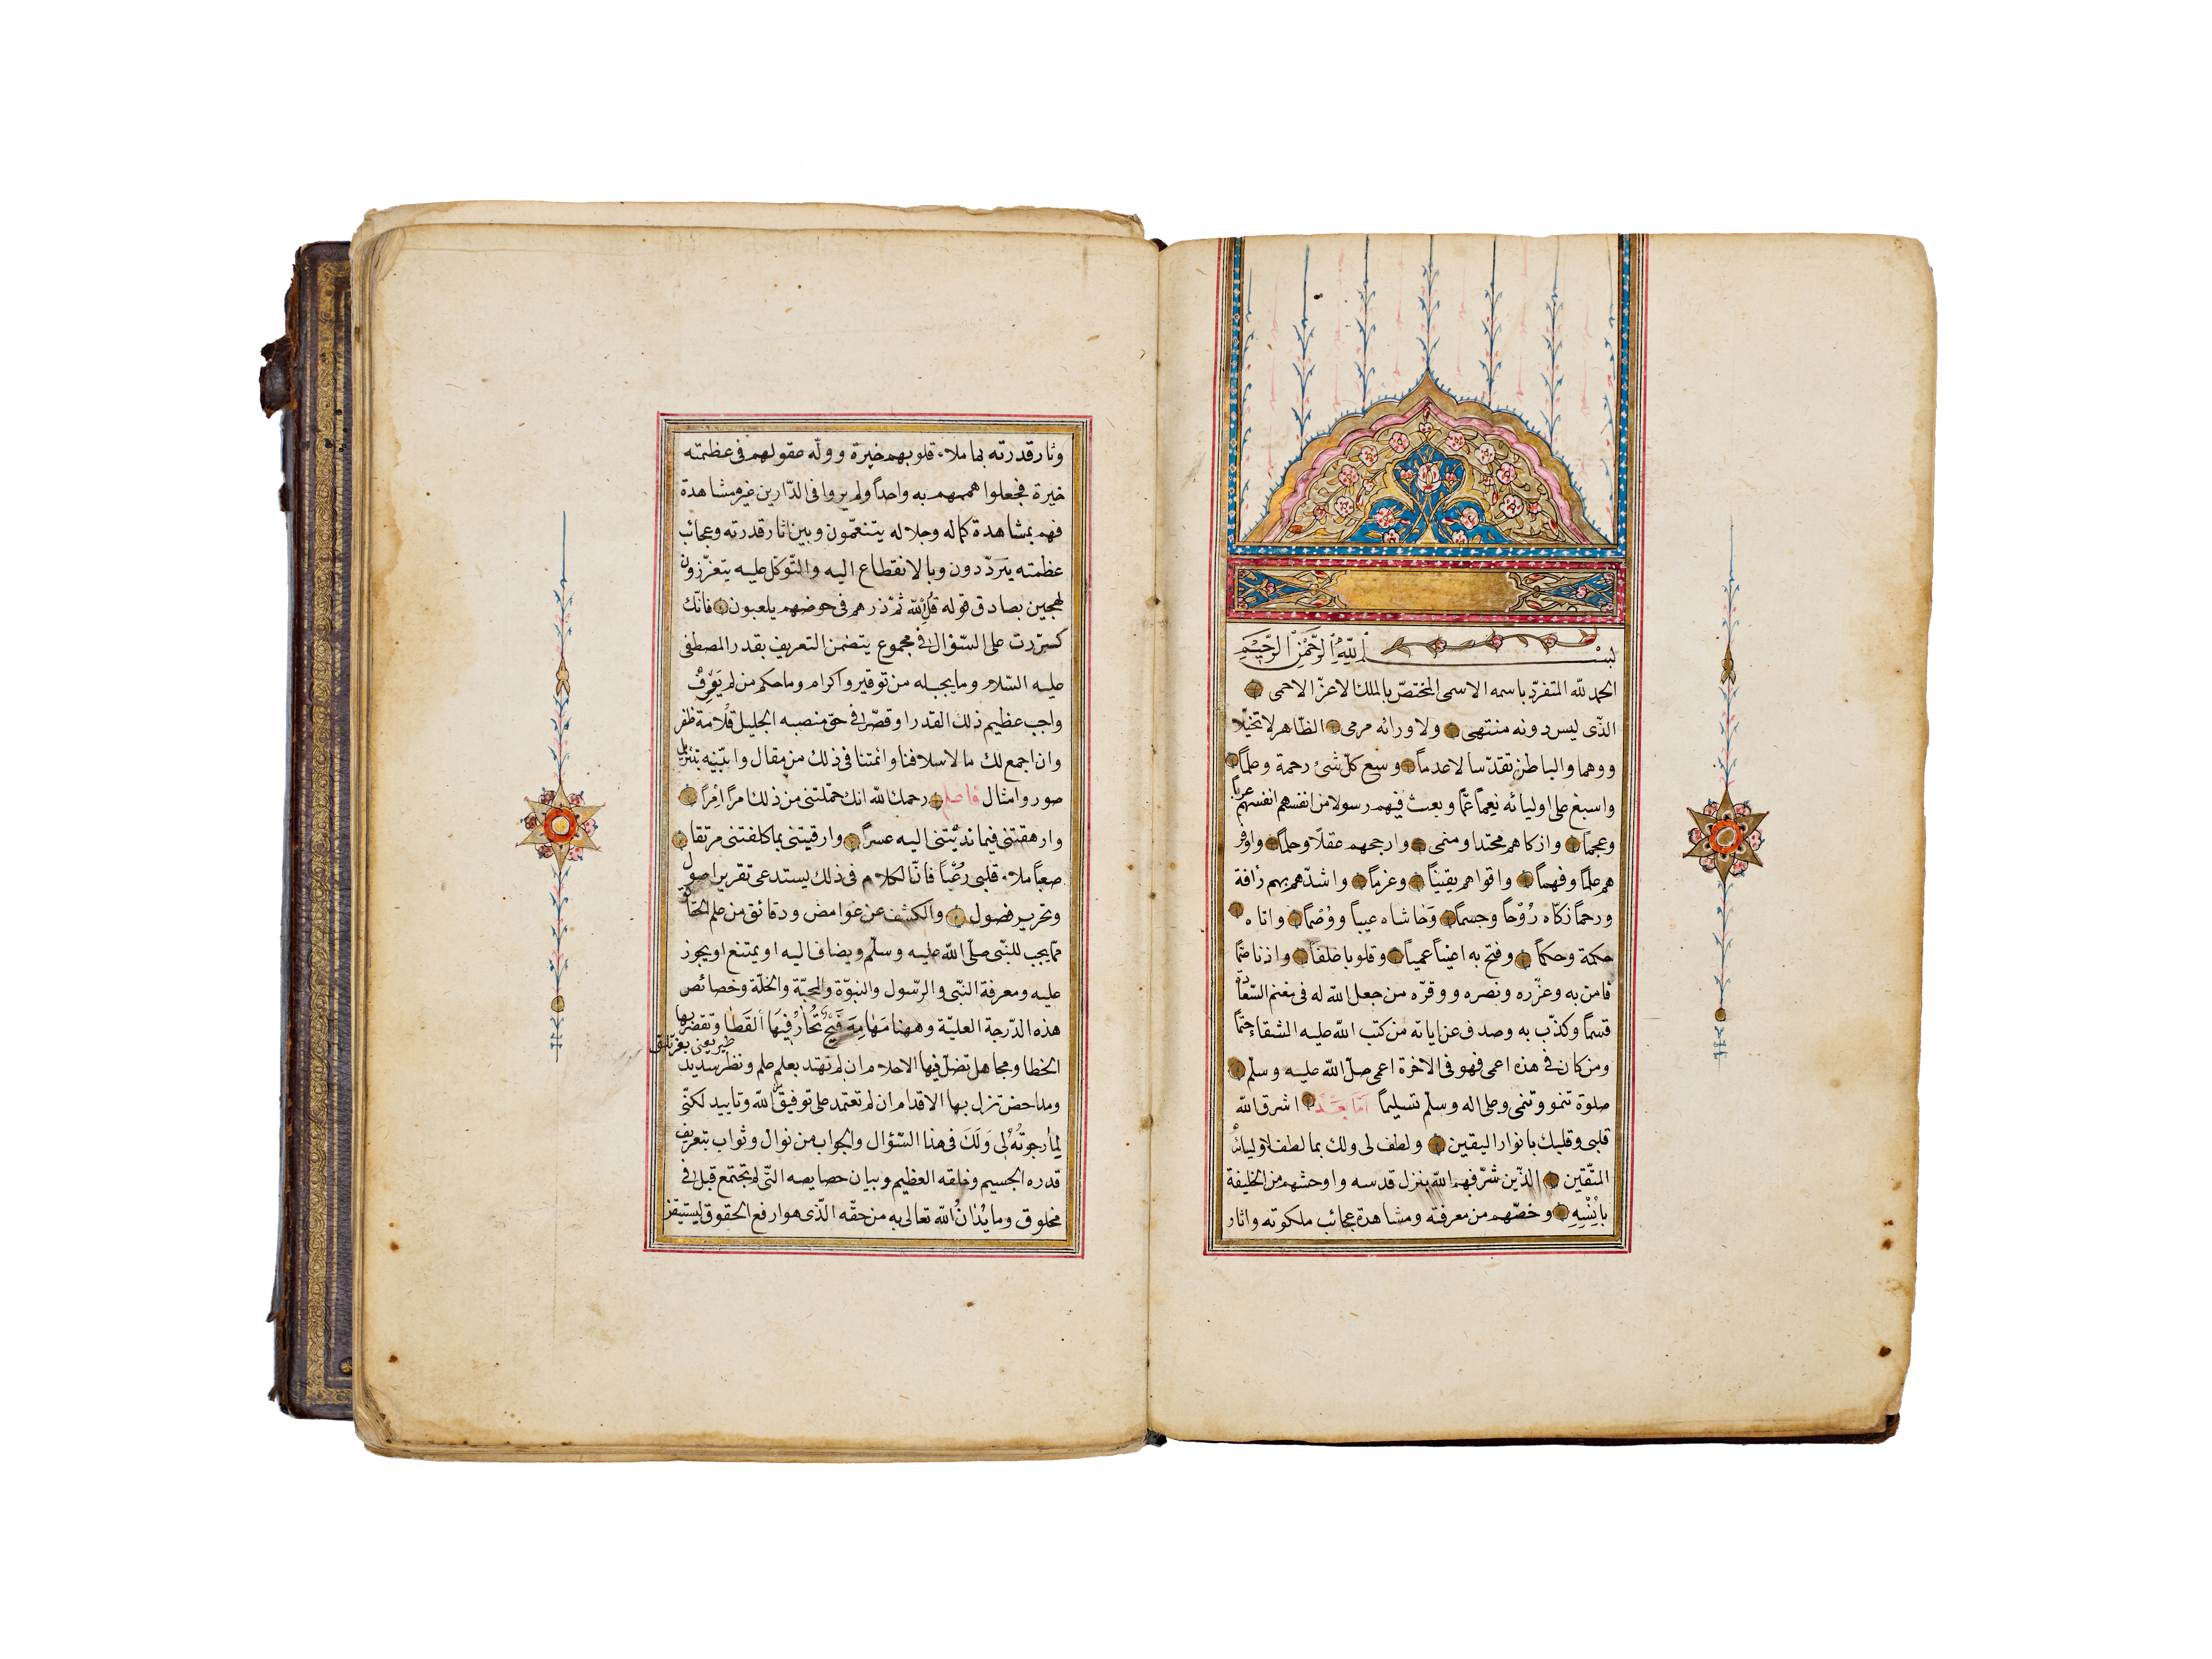 بسم الله الرحمن الرحيم
الحمد لله المتفرّد باسمه الاسمى المختصّ بالملك الاعزّ الاحمى
الذّى ليس دونه منتهى ولا ورائه مرمى الظاهر لا تخيّلا
ووهما والباطن تقدّسا لا عدماً وسع كلّ شئ رحمة وعلماً
واسبغ على اوليائه نِعماً عمّا وبعث فيهم رسولا من انفسهم انفسهم عرباً
وعجماً وازكاهم محتدا ومنمى وارجحهم عقلًا وحلماً واوفر
هم علماً وفهماً واقواهم يقيناً وعزماً واشدّهم بهم رأفة
ورحماً زكّاه رُوْحاً وجسماً وَحَاشاه عيباً ووُصْماً واتاه
حكمة وحكماً وفتح به اعيناً عمياً وقلوبا غلفاً واذنا صمّا
فامن به وعزّره ونصره ووقرّه من جعل الله له فى مغنم السّعادة
قسماً وكذّب به وصدف عن اياته من كتب الله عليه الشقاء حتماً
ومن كان فى هذه اعمى فهو فى الاخرة اعمى صلّ الله عليه وسلّم
صلوة تنمو وتنمى وعلى اله وسلّم تسليماً امّا بعد اشرق الله
قلبى وقلبك بانوار اليقين ولطف لى ولك بما لطف لاوليائه
المتّقين الذّين شرّفهم الله بنزل قدسه واوحشهم من الخليفة
بأُنْسِهِ وخصّهم من معرفته ومشاهدة عجائب ملكوته واثار
وثار قدرته بما ملاء قلوبهم خيرة وولّه عقولهم فى عظمته
خيرة فجعلوا هممهم به واحداً ولم يروا فى الدّارين غيره مشاهدة
فهم بمشاهدة كماله وجلاله يتنعّمون وبين اثار قدرته وعجائب
عظمته يتردّدون وبالانقطاع اليه والتّوكل عليه يتعزّزون
لهجين بصادق قوله قُلِ الله ثمّ ذرهم فى خوضهم يلعبون فانّك
كرّرت على السّؤال فى مجموع يتضمن التعريف بقدر المصطفى
عليه السّلام وما يجب له من توقير واكرام وما حكم من لم يَعْرِفْ
واجب عظيم ذلك القدر او قصّر فى حق منصبه الجليل قُلامة ظفر
وان اجمع لك ما لاسلافنا وائمتنا فى ذلك من مقال وابيّنه بتنزيل
صور وامثال فاعلم رحمك الله انك حمّلتنى من ذلك امراً اِمْراً
وارهقتنى فيما نديْتنى اليه عسراً وارقيتنى بما كلفتنى مرتقا
صعباً ملاء قلبى رُعْباً فانّ الكلام فى ذلك يستدعى تقرير اصول
وتحرير فصول والكشف عن غوامض ودقائق من علم الحقائق
ممّا يجب للنبّى صلّى الله عليه وسلّم ويضاف اليه او يمتنع او يجوز
عليه ومعرفة النبّى والرّسول والنبوّة والمحبّة والخلّة وخصائص
هذه الدّرجة العليّة وههنا مَهَامِهَ فَيْحٌ تُحارُ فِيهَا القَطَا وتقصر بها
الخطا ومجاهل تضلّ فيها الاحلام ان لم تهتد بعلم علم ونظر سديد
ومداحض تزل بها الاقدام ان لم تعتمد على توفيق الله وتاييد لكنّى
لِمَا رجوتُهُ لِى وَلَكَ فى هذا السّؤال والجواب من نوال وثواب بتعريف
قدره الجسيم وخلقه العظيم وبيان خصايصه التّى لم تجتمع قبل فى
مخلوق وما يُدَانُ الله تعالى به من حقّه الذّى هو ارفع الحقوق ليستيقن